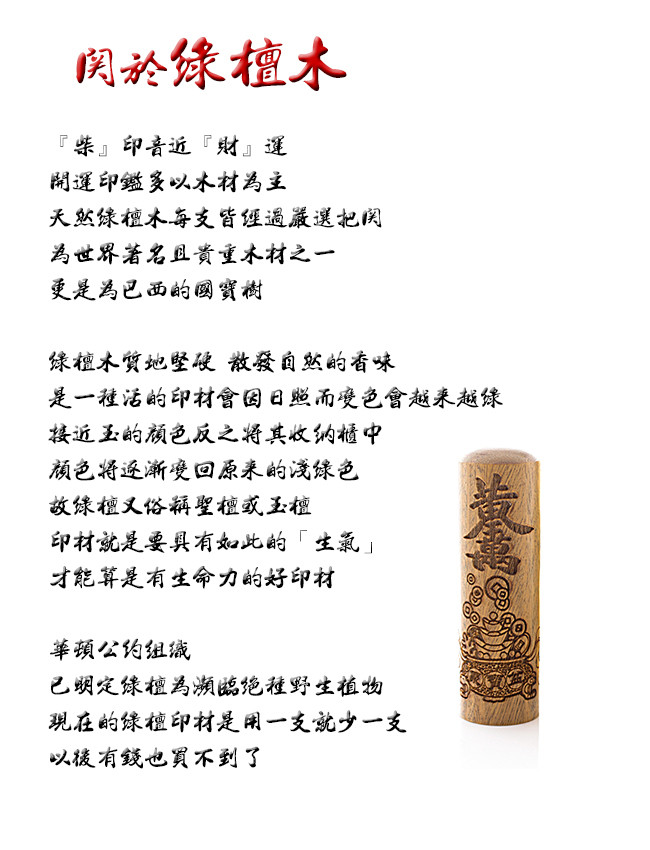 関於綠檀木
『柴』印音近『財』運
開運印鑑多以木材為主
天然綠檀木每支皆經過嚴選把関
為世界著名且貴重木材之一
更是為巴西的國寶樹
綠檀木質地堅硬 散發自然的香味
是一種活的印材會因日照而變色會越来越綠
接近玉的顏色反之將其收納櫃中
顏色將逐漸變回原来的淺綠色
故綠檀又俗稱聖檀或玉檀
印材就是要具有如此的「生氣」
才能算是有生命力的好印材
華頓公約組織
已明定綠檀為瀕臨絕種野生植物
現在的綠檀印材是用一支就少一支
以後有錢也買不到了